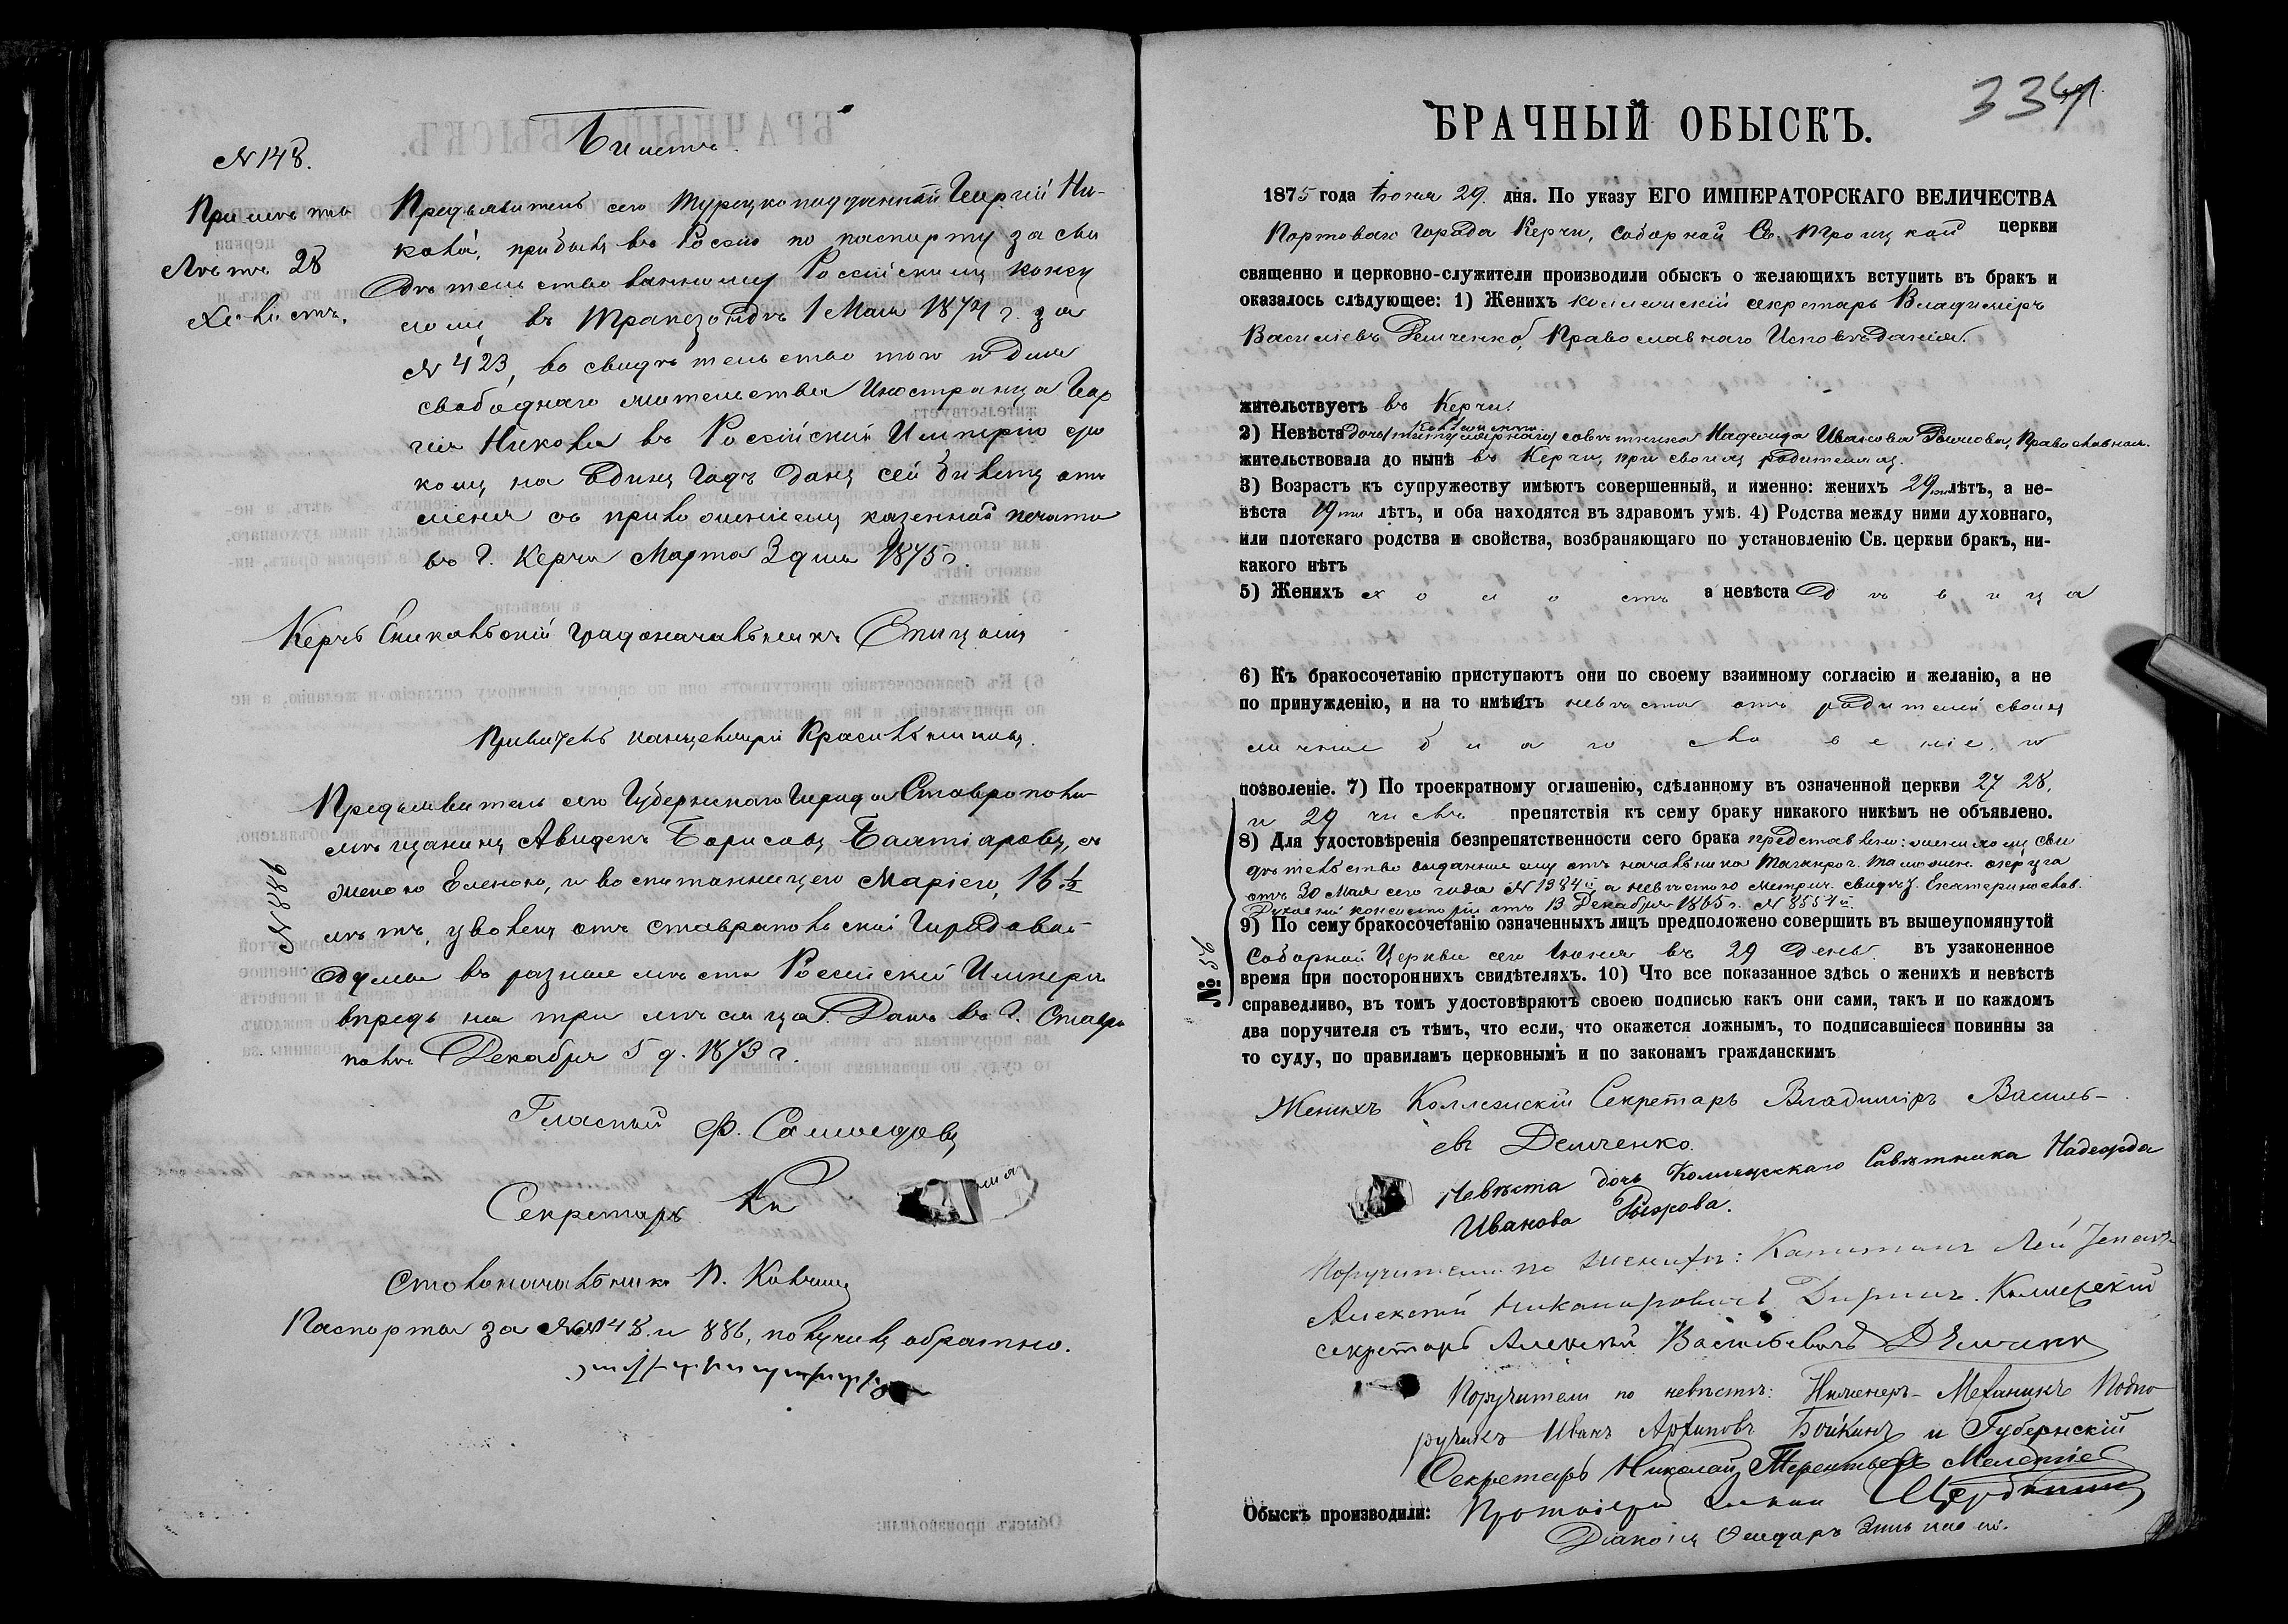 № 148.
Билетъ
Примѣты
Лѣтъ 28
Холостъ.
Предъявитель сего Турецкоподданный Георгій Ни-
кола, прибылъ въ Россію по паспорту засви
дѣтельствованному Россійскимъ Консу
ломъ въ Трапезондѣ 1 Мая 1874 г. за
№ 423, во свидѣтельство того и для
свободнаго жительства Иностранца Геор
гія Николы въ Россійской Имперіи сро
комъ на одинъ годъ данъ сей билетъ отъ
меня съ приложеніемъ казенной печати
въ г. Керчи Марта 3 дня 1875 г.
Керчь Еникольскій Градоначальникъ Спицынъ
Правитель канцеляріи Красильниковъ.
№ 886
Предъявитель сего Губернскаго Города Ставрополя
мѣщанинъ Авидекъ Борисовъ Балтіаровъ, съ
женою Еленою, и воспитанницею Маріею, 16 ½
лѣтъ, уволенъ отъ Ставропольской Городовой
думы въ разныя мѣста Россійской Имперіи
впредь на три мѣсяца. Данъ въ г. Ставро
полѣ Декабря 5 д. 1873 г.
Гласный Ф.
Секретарь
Столоначальникъ П.
Паспорта за №№ 148 и 886, получилъ обратно.
334
БРАЧНЫЙ ОБЫСКЪ.
1875 года Іюня 29. дня. По указу ЕГО ИМПЕРАТОРСКАГО ВЕЛИЧЕСТВА
Портоваго города Керчи, Соборной Св. Троицкой церкви
священно и церковно-служители производили обыскъ о желающихъ вступить въ бракъ и
оказалось слѣдующее: 1) Женихъ коллежскій секретарь Владиміръ
Василіевъ Демченко, Православнаго Исповѣданія.
жительствуетъ въ Керчи.
2) Невѣста дочь титулярнаго совѣтника Надежда Иванова Рыжова, Православная.
жительствовала до нынѣ въ Керчи, при своихъ родителяхъ.
3) Возрастъ къ супружеству имѣютъ совершенный, и именно: женихъ 29ти лѣтъ, а не-
вѣста 19ти лѣтъ, и оба находятся въ здравомъ умѣ. 4) Родства между ними духовнаго,
или плотскаго родства и свойства, возбраняющаго по установленію Св. церкви бракъ, ни-
какого нѣтъ
5) Женихъ холостъ а невѣста дѣвица
6) Къ бракосочетанію приступаютъ они по своему взаимному согласію и желанію, а не
по принужденію, и на то имѣютъ невѣста отъ родителей своихъ
личное благословеніе, и
позволеніе. 7) По троекратному оглашенію, сдѣланному въ означенной церкви 27 28,
и 29 числъ препятствія къ сему браку никакого никѣмъ не объявлено.
8) Для удостовѣренія безпрепятственности сего брака представлены: женихомъ сви
дѣтельство выданное ему отъ начальника Таганрог. Таможен. округа
отъ 30 Мая сего года № 1984й а невѣстою метрич. свидѣт. Екатеринослав.
Духовной консисторіи отъ 13 Декабря 1865 г. № 8554й.
9) По сему бракосочетанію означенныхъ лицъ предположено совершить въ вышеупомянутой
Соборной Церкви сего Іюня въ 29 день. въ узаконенное
№ 56
время при постороннихъ свидѣтеляхъ. 10) Что все показанное здѣсь о женихѣ и невѣстѣ
справедливо, въ томъ удостовѣряютъ своею подписью какъ они сами, такъ и по каждомъ
два поручителя съ тѣмъ, что если, что окажется ложнымъ, то подписавшіеся повинны за
то суду, по правиламъ церковнымъ и по законамъ гражданскимъ
Женихъ Коллежскій Секретарь Владиміръ Василь-
евъ Демченко.
Невѣста дочь Коллежскаго Совѣтника Надежда
Иванова Рыжова.
Поручители по женихѣ: Капитанъ Лейтенантъ
Алексѣй Никаноровичъ Диринъ. Коллежскій
секретарь Алексѣй Васильевичъ Демченко
Поручители по невѣстѣ: Инженеръ-Механикъ Подпо
ручикъ Иванъ Архиповъ Бойкинъ и Губернскій
Секретарь Николай Терентьевъ Мелетіевъ
Обыскъ производили: Протоіерей
Діаконъ